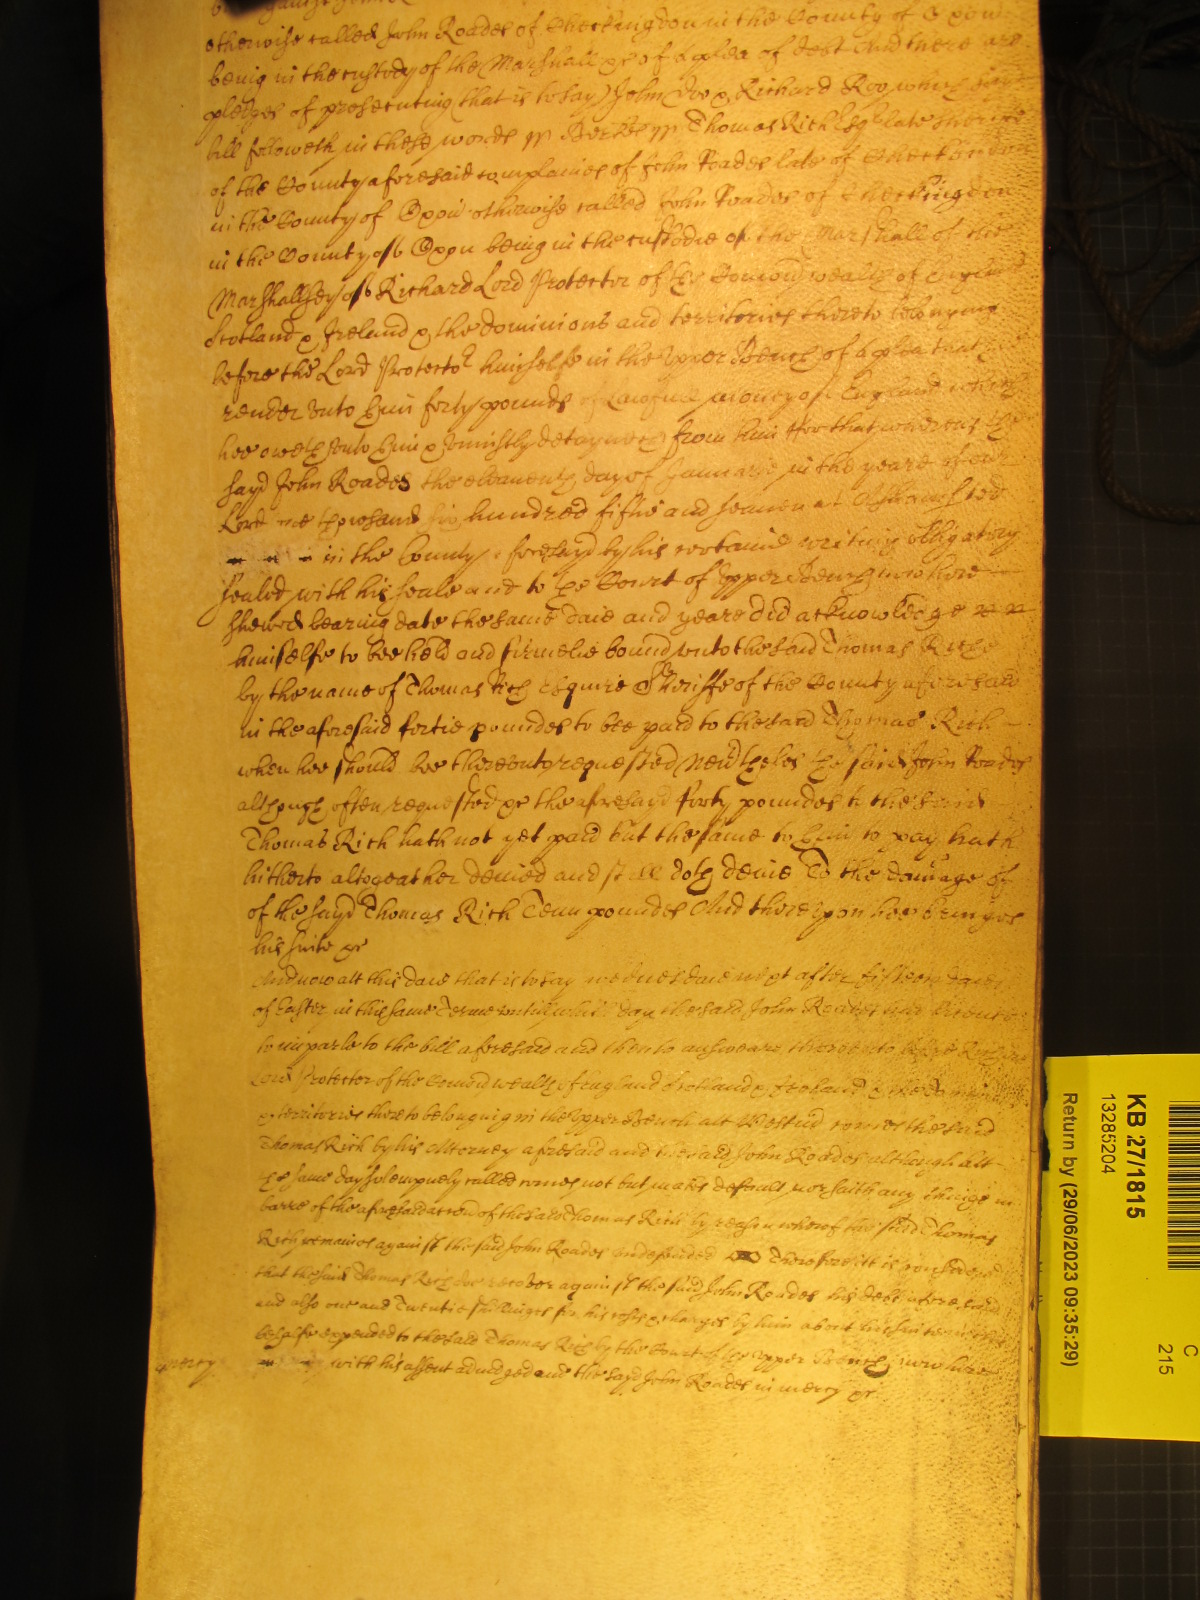 otherwise called John Roades of Checkingdon in the County of Oxon
being in the custody of the Marshall &c of a plea of debt And there are
pledges of prosecuting (that is to say) John Doe & Richard Roo, which
bill followeth in these words Berks Thomas Rich Esqr late Sheriffe
of the County aforesaid complaines of John Roades late of Checkendon
in the County of Oxon otherwise called John Roades of Checkingdon
in the County of Oxon being in the custodie of the Marshall of the
Marshallsey of Richard Lord Protector of the Comonwealth of England
Scotland & Ireland & the dominions and territories thereto belonging
before the Lord Protector himselfe in the upper Bench of a plea that
render unto him forty pounds of lawfull money of England which
hee oweth unto him & uniustly detayneth from him For that whereas the
sayd John Roades the eleaventh day of Januarie in the yeare of our
Lord one thousand six hundred fiftie and seaven at
in the County aforesayd by his certaine writing obligatory
sealed with his seale and to the Court of upper Bench now here
shewed bearing date the same daie and yeare did acknowledge
himselfe to bee held and firmelie bound unto the said Thomas Riche
by the name of Thomas Rich Esquire Sheriffe of the County aforesaid
in the aforesaid fortie poundes to bee paid to the said Thomas Rich
when hee should bee thereunto requested Neverthelesse the said John Roades
although often requested &c the aforesayd forty poundes to the said
Thomas Rich hath not yet paid but the same to him to pay hath
hitherto altogeather denied and still doth denie To the damage of
of the sayd Thomas Rich Tenn poundes And thereupon hee bringes
his suite &c
And now att this daie that is to say wednesdaie next after fifteen daies
of Easter in this same Terme untill which day the said John Roades had licence
to imparle to the bill aforesaid and then to answeare thereunto before
Lord Protector of the Comonwealth of England Scotland & Ireland & the dominions
& territories thereto belonging in the upper Bench att Westmr comes the said
Thomas Rich by his Attorney aforesaid and the said John Roades although att
the same day solempnely called comes not but makes default nor saith any thinge in
barre of the aforesaid accon of the said Thomas Rich by reason whereof the said Thomas
Rich remaines against the said John Roades undefended Therefore itt is considered
that the said Thomas Rich doe recover against the said John Roades his debt aforesaid
and also one and Twentie shillinges for his costes & charges by him about his suite in this
behalfe expended to the said Thomas Rich by the Court of the upper Bench now here
with his assent adiudged and the sayd John Roades in mercy &c
in mercy
KB 27/1815
13285204
Return by (29/06/2023 09:35:29)
C
215